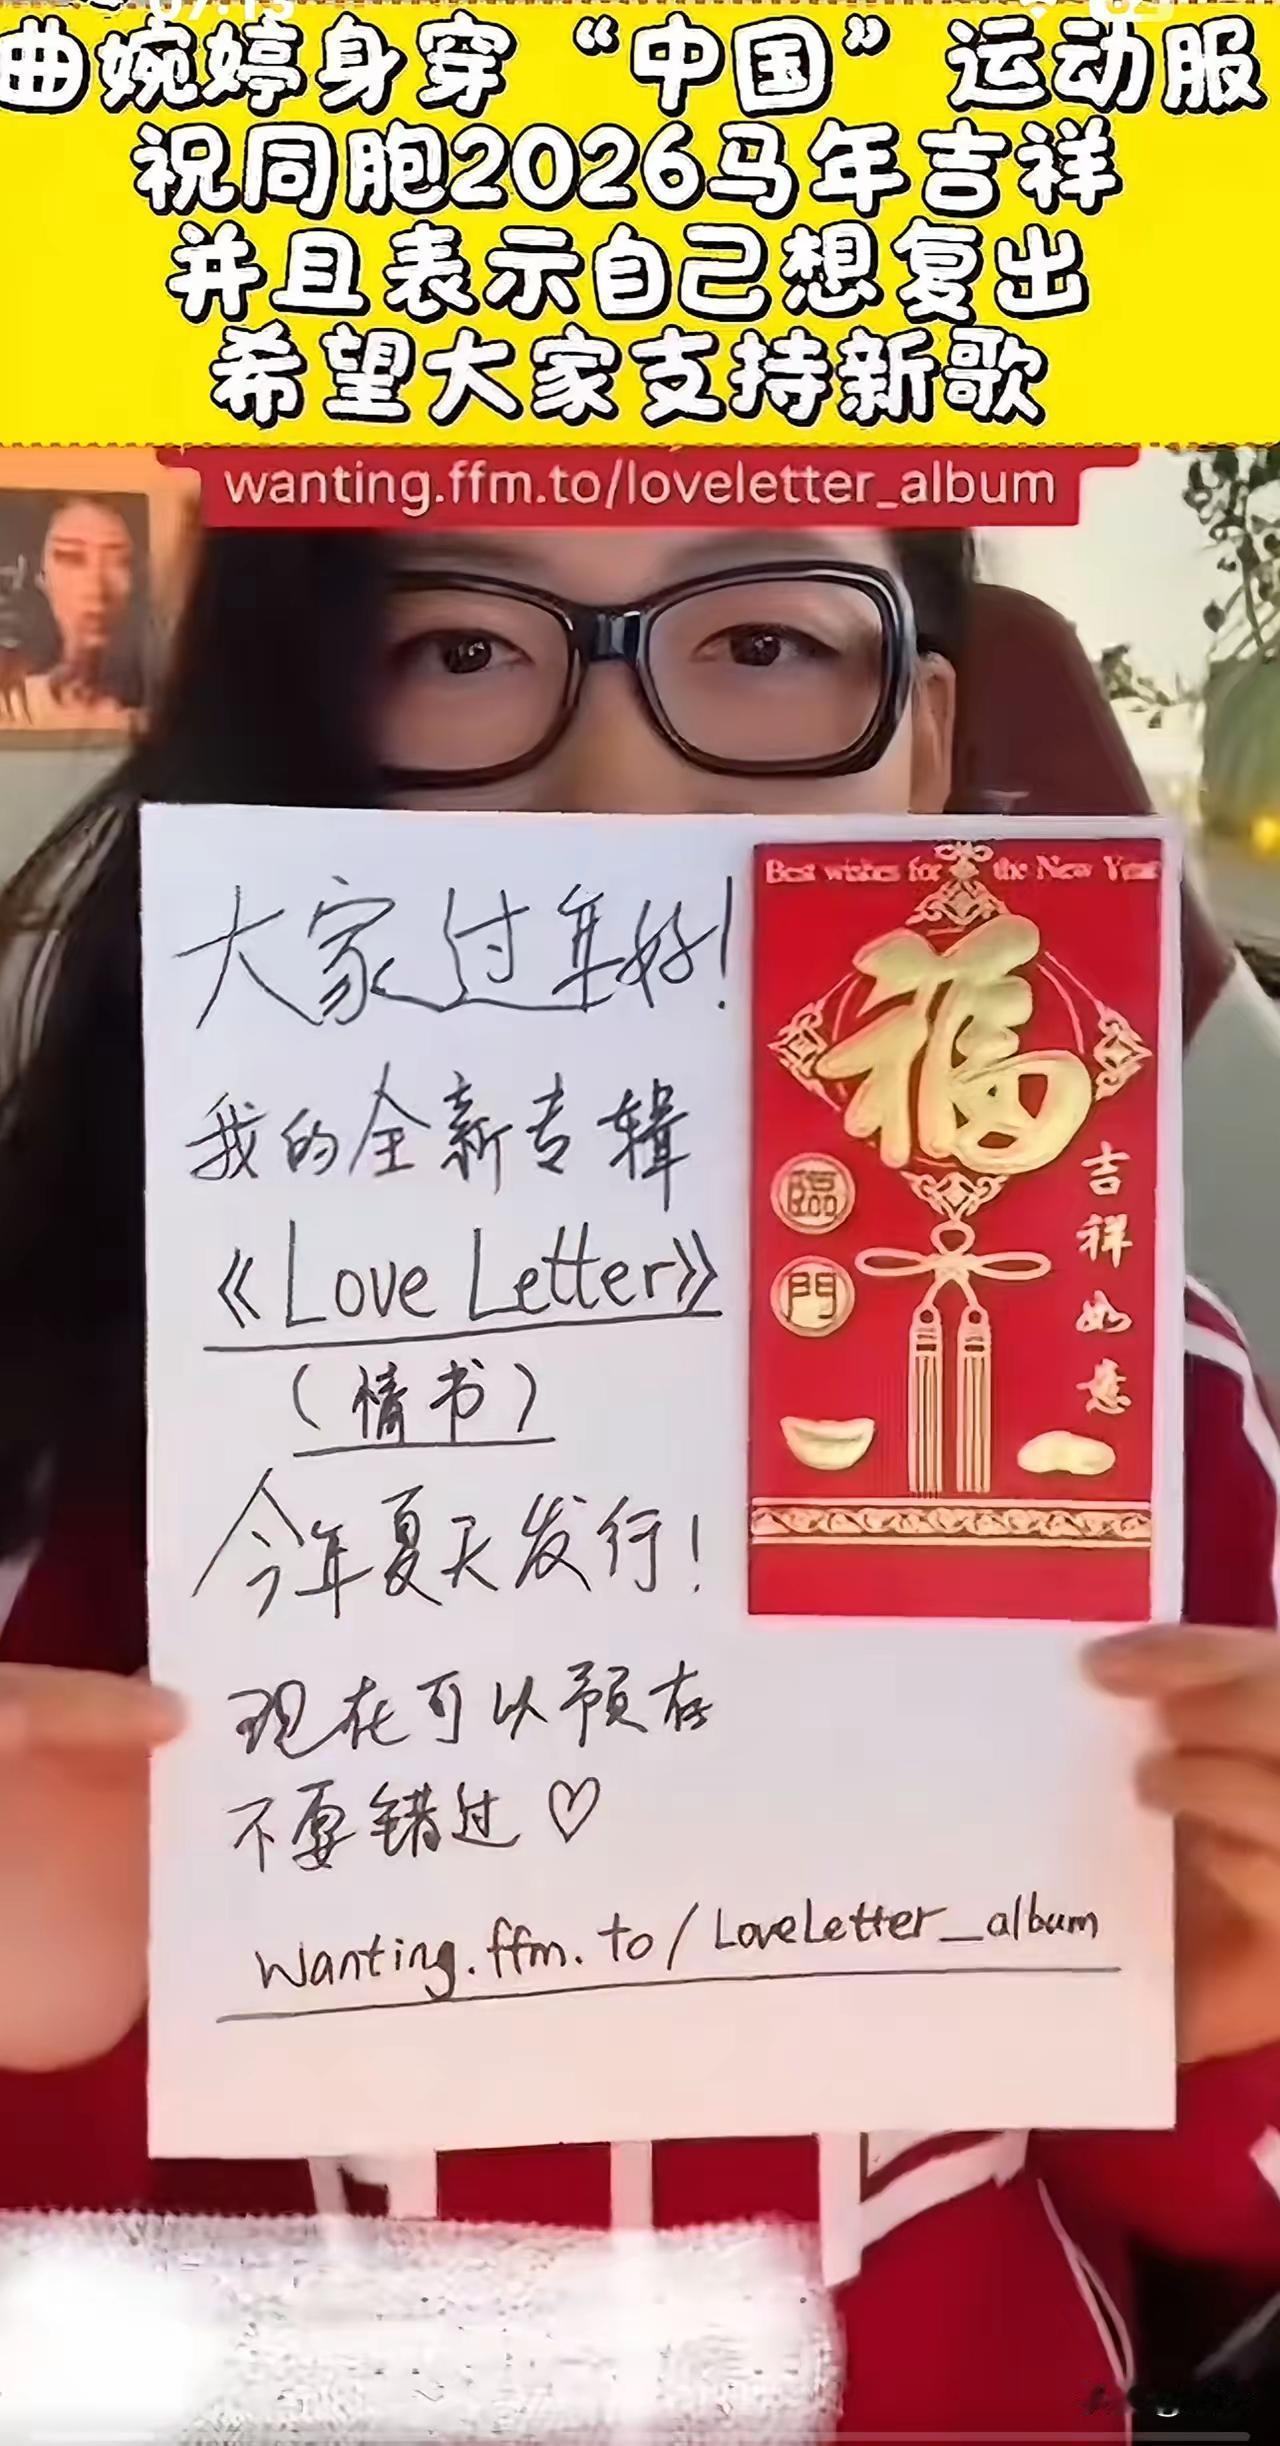 曲婉婷身穿“中国”运动服
祝同胞2026马年吉祥
并且表示自己想复出
希望大家支持新歌
wanting.ffm.to/loveletter_album
大家过年好!
我的全新专辑
《Love Letter》
(情书)
今年夏天发行!
现在可以预存
不要错过♡
Wanting.ffm.to/LoveLetter_album
Best wishes for the New Year
福
臨
門
吉祥如意